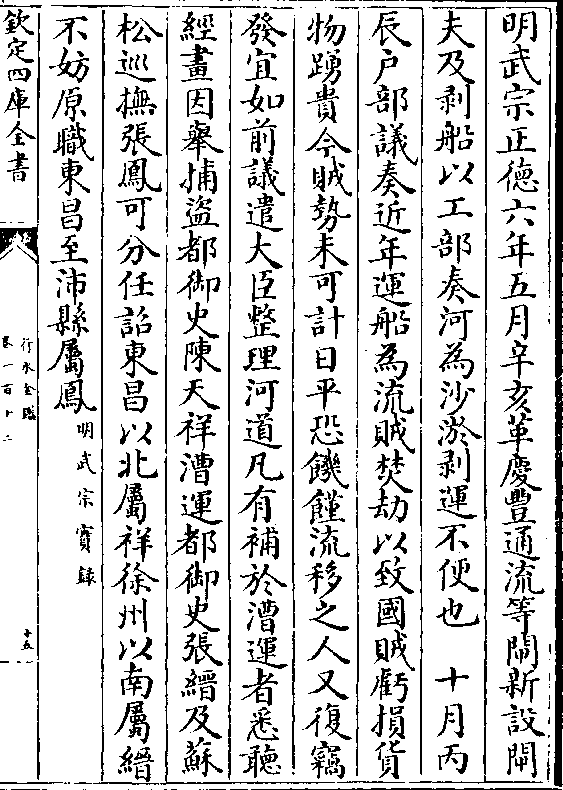 明武宗正德六年五月辛亥革慶豐通流等閘新設閘
夫及剥船以工部奏河為沙淤剥運不便也　十月丙
辰戸部議奏近年運船為流賊焚劫以致國賊虧損貨
物踴貴今賊勢未可計日平恐饑饉流移之人又復竊
發宜如前議遣大臣整理河道凡有補於漕運者悉聽
經畫因舉捕盗都御史陳天祥漕運都御史張縉及蘇
松巡撫張鳳可分任詔東昌以北屬祥徐州以南屬縉
不妨原職東昌至沛縣屬鳳 明武宗實録
欽定四庫全書
行水金鑑
卷一百十二
十五